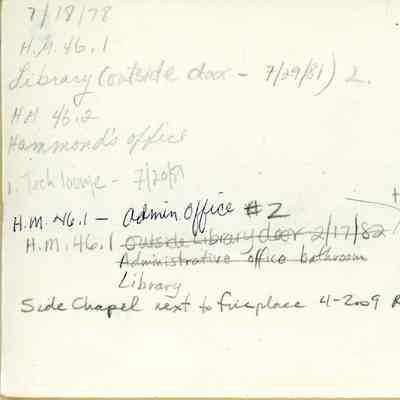 7/18/78
H.M. 46.1
Library (outside door - 7/29/81) 2.
HM 46.2
Hammond's office
1. Jack lounge - 7/20/81
H.M. 46.1 - Admin. Office #2
H.M. 46.1 outside Library door 2/17/82
Administrative office bathroom
Library
Side Chapel next to fireplace 4-2009